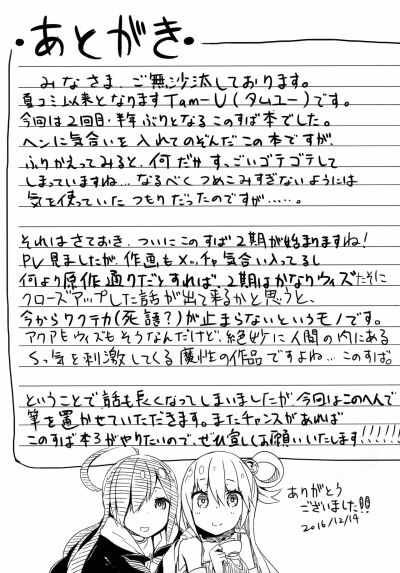 ・あとがき・
みなさま、ご無沙汰しております。
真コミ以来となりますTam-U(タムユー)です。
今回は2回目・半年ぶりとなるこのすば本でした。
ヘンに気合いを入れてのぞんだこの本ですが、
ふりかえってみると、何だかすっごいゴテゴテして
しまっていますね…なるべくつめこみすぎないようには
気を使っていたつもりだったのですが……。
それはさておき、ついにこのすば2期が始まりますね!
PV見ましたが、作画もメッチャ気合い入ってるし
何より原作通りだとすれば、2期はかなりウィズたそに
クローズアップした話が出て来るかと思うと、
今からワクテカ(死語?)が止まらないというモノです。
アクアもウィズもそうなんだけど、絶妙に人間の内にある
Sっ気を刺激してくる魔性の作品ですよね…このすば。
ということで話も長くなってしまいましたが今回はこのへんで
筆を置かせていただきます。またチャンスがあれば
このすば本3がやりたいので、ぜひ宜しくお願いいたします!!!!!!
ありがとう
ございました!!
2016/12/14